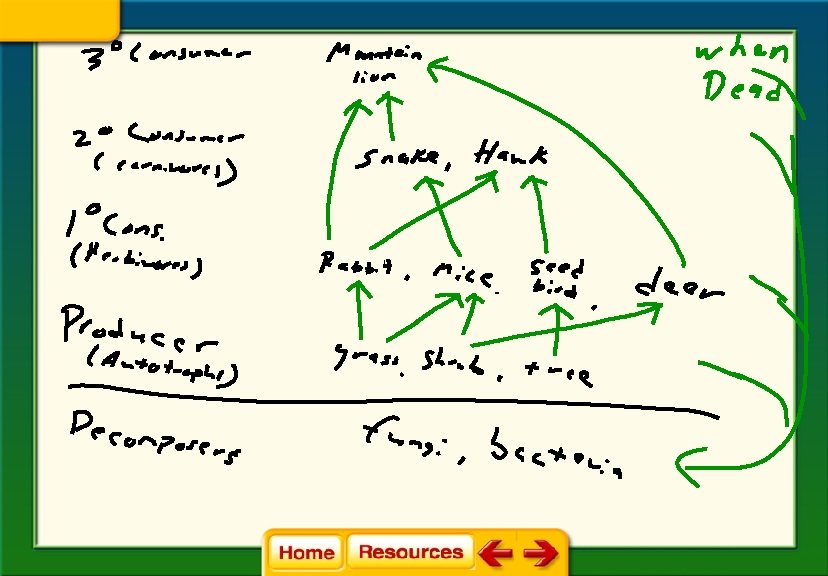 3° Consumer
Mountain
lion
when
Dead
2° Consumer
(carnivores)
snake, Hawk
1° Cons.
(Herbivores)
Rabbit, mice,
seed
bird,
deer
Producer
(Autotrophs)
grass, shrub, tree
Decomposers
fungi, bacteria
Home
Resources